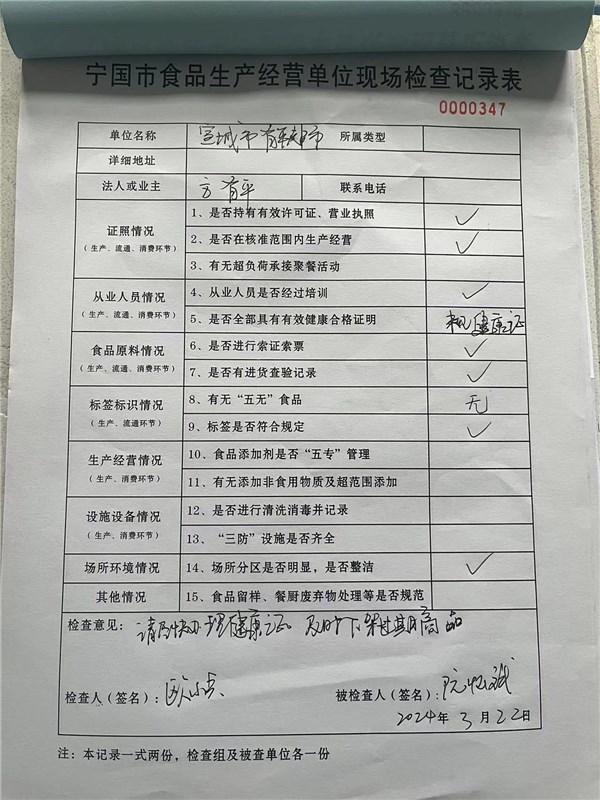 宁国市食品生产经营单位现场检查记录表
0000347
单位名称 宣城市 超市 所属类型
详细地址
法人或业主 方 平 联系电话
证照情况
（生产、流通、消费环节）
1、是否持有有效许可证、营业执照 ✓
2、是否在核准范围内生产经营 ✓
3、有无超负荷承接聚餐活动
从业人员情况
（生产、流通、消费环节）
4、从业人员是否经过培训 ✓
5、是否全部具有有效健康合格证明 未见健康证
食品原料情况
（生产、流通、消费环节）
6、是否进行索证索票 ✓
7、是否有进货查验记录 ✓
标签标识情况
（生产、流通环节）
8、有无“五无”食品 无
9、标签是否符合规定 ✓
生产经营情况
（生产、消费环节）
10、食品添加剂是否“五专”管理
11、有无添加非食用物质及超范围添加
设施设备情况
（生产、消费环节）
12、是否进行清洗消毒并记录
13、“三防”设施是否齐全
场所环境情况 14、场所分区是否明显，是否整洁 ✓
其他情况 15、食品留样、餐厨废弃物处理等是否规范
检查意见：请尽快办理健康证 及时下架过期商品
检查人（签名）： 被检查人（签名）：
2024年3月22日
注：本记录一式两份，检查组及被查单位各一份